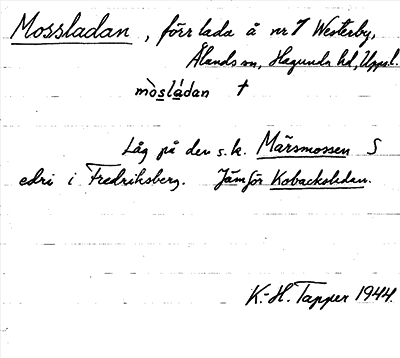 Mossladan, förr lada å nr 7 Westerby,
Ålands sn, Hagunda hd, Uppsl.
mòslá̀dan †
Låg på den s.k. Märsmossen S
i Fredriksberg. Jämför Kobacksladan.
K.-H. Tapper 1944.